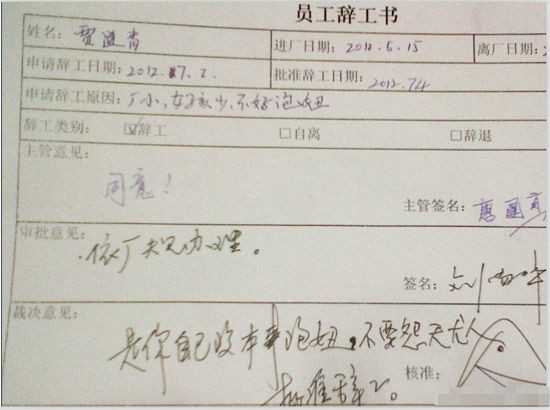 员工辞工书
姓名: 贾进青 进厂日期: 2012.6.15 离厂日期: 2
申请辞工日期: 2012.7.2. 批准辞工日期: 2012.7.4
申请辞工原因: 厂小,女孩少,不好泡妞
辞工类别: ☑辞工 □自离 □辞退
主管意见:
同意!
主管签名: 唐
审批意见:
依厂规办理。
签名: 刘
裁决意见:
是你自己没本事泡妞,不要怨天尤人
核准:
批准辞工。